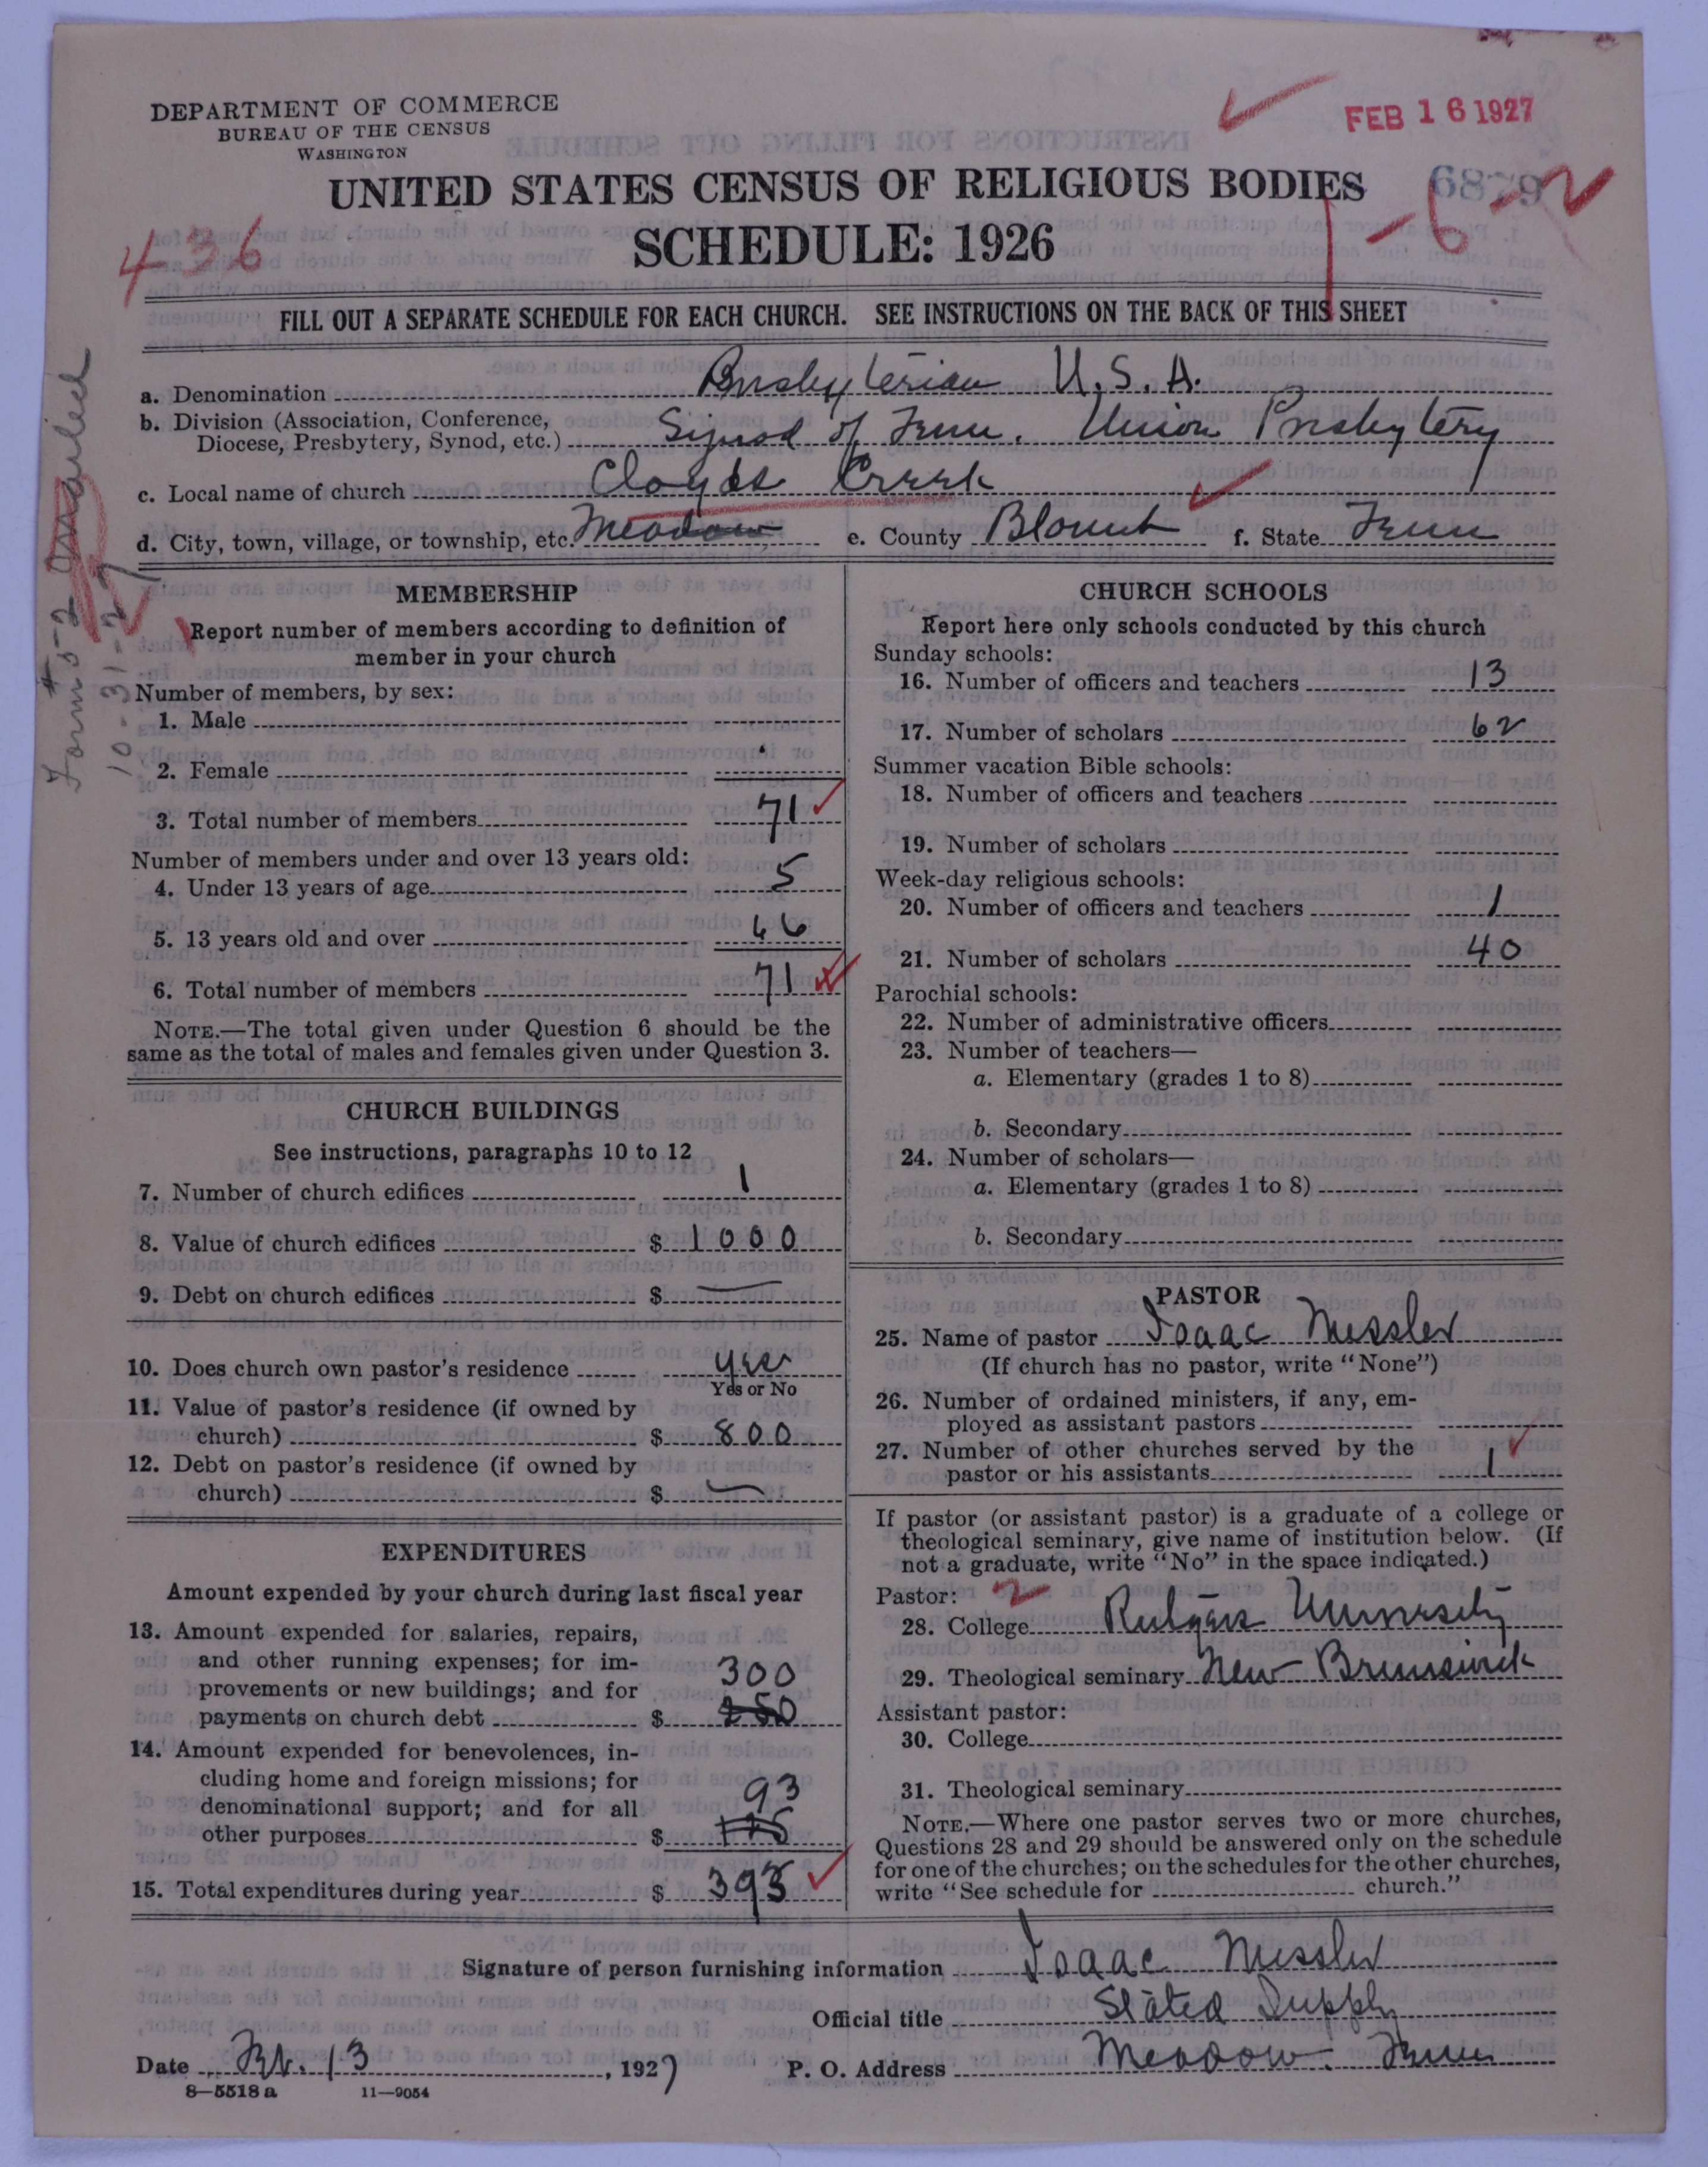 DEPARTMENT OF COMMERCE
BUREAU OF THE CENSUS
WASHINGTON
FEB 16 1927
6879
UNITED STATES CENSUS OF RELIGIOUS BODIES
1-6-2
436
SCHEDULE: 1926
FILL OUT A SEPARATE SCHEDULE FOR EACH CHURCH. SEE INSTRUCTIONS ON THE BACK OF THIS SHEET
a. Denomination Presbyterian U.S.A.
b. Division (Association, Conference,
Diocese, Presbytery, Synod, etc.) Synod of Tenn. Union Presbytery
c. Local name of church Cloyds Creek
d. City, town, village, or township, etc. Meadow e. County Blount f. State Tenn
Form #5-2 mailed
10-31-27
MEMBERSHIP
Report number of members according to definition of
member in your church
Number of members, by sex:
1. Male
2. Female
3. Total number of members 71
Number of members under and over 13 years old:
4. Under 13 years of age 5
5. 13 years old and over 66
6. Total number of members 71
NOTE.—The total given under Question 6 should be the
same as the total of males and females given under Question 3.
CHURCH BUILDINGS
See instructions, paragraphs 10 to 12
7. Number of church edifices 1
8. Value of church edifices $ 1000
9. Debt on church edifices $ —
10. Does church own pastor's residence yes
Yes or No
11. Value of pastor's residence (if owned by
church) $ 800
12. Debt on pastor's residence (if owned by
church) $ —
EXPENDITURES
Amount expended by your church during last fiscal year
13. Amount expended for salaries, repairs,
and other running expenses; for im-
provements or new buildings; and for 300
payments on church debt $ 250
14. Amount expended for benevolences, in-
cluding home and foreign missions; for
denominational support; and for all 93
other purposes $
15. Total expenditures during year $ 393
CHURCH SCHOOLS
Report here only schools conducted by this church
Sunday schools:
16. Number of officers and teachers 13
17. Number of scholars 62
Summer vacation Bible schools:
18. Number of officers and teachers
19. Number of scholars
Week-day religious schools:
20. Number of officers and teachers 1
21. Number of scholars 40
Parochial schools:
22. Number of administrative officers
23. Number of teachers—
a. Elementary (grades 1 to 8)
b. Secondary
24. Number of scholars—
a. Elementary (grades 1 to 8)
b. Secondary
PASTOR
25. Name of pastor Isaac Messler
(If church has no pastor, write "None")
26. Number of ordained ministers, if any, em-
ployed as assistant pastors
27. Number of other churches served by the
pastor or his assistants 1
If pastor (or assistant pastor) is a graduate of a college or
theological seminary, give name of institution below. (If
not a graduate, write "No" in the space indicated.)
Pastor: 2
28. College Rutgers University
29. Theological seminary New Brunswick
Assistant pastor:
30. College
31. Theological seminary
NOTE.—Where one pastor serves two or more churches,
Questions 28 and 29 should be answered only on the schedule
for one of the churches; on the schedules for the other churches,
write "See schedule for church."
Signature of person furnishing information Isaac Messler
Official title Stated Supply
Date Feb. 13, 1927 P. O. Address Meadow Tenn
8—5518 a 11—9054